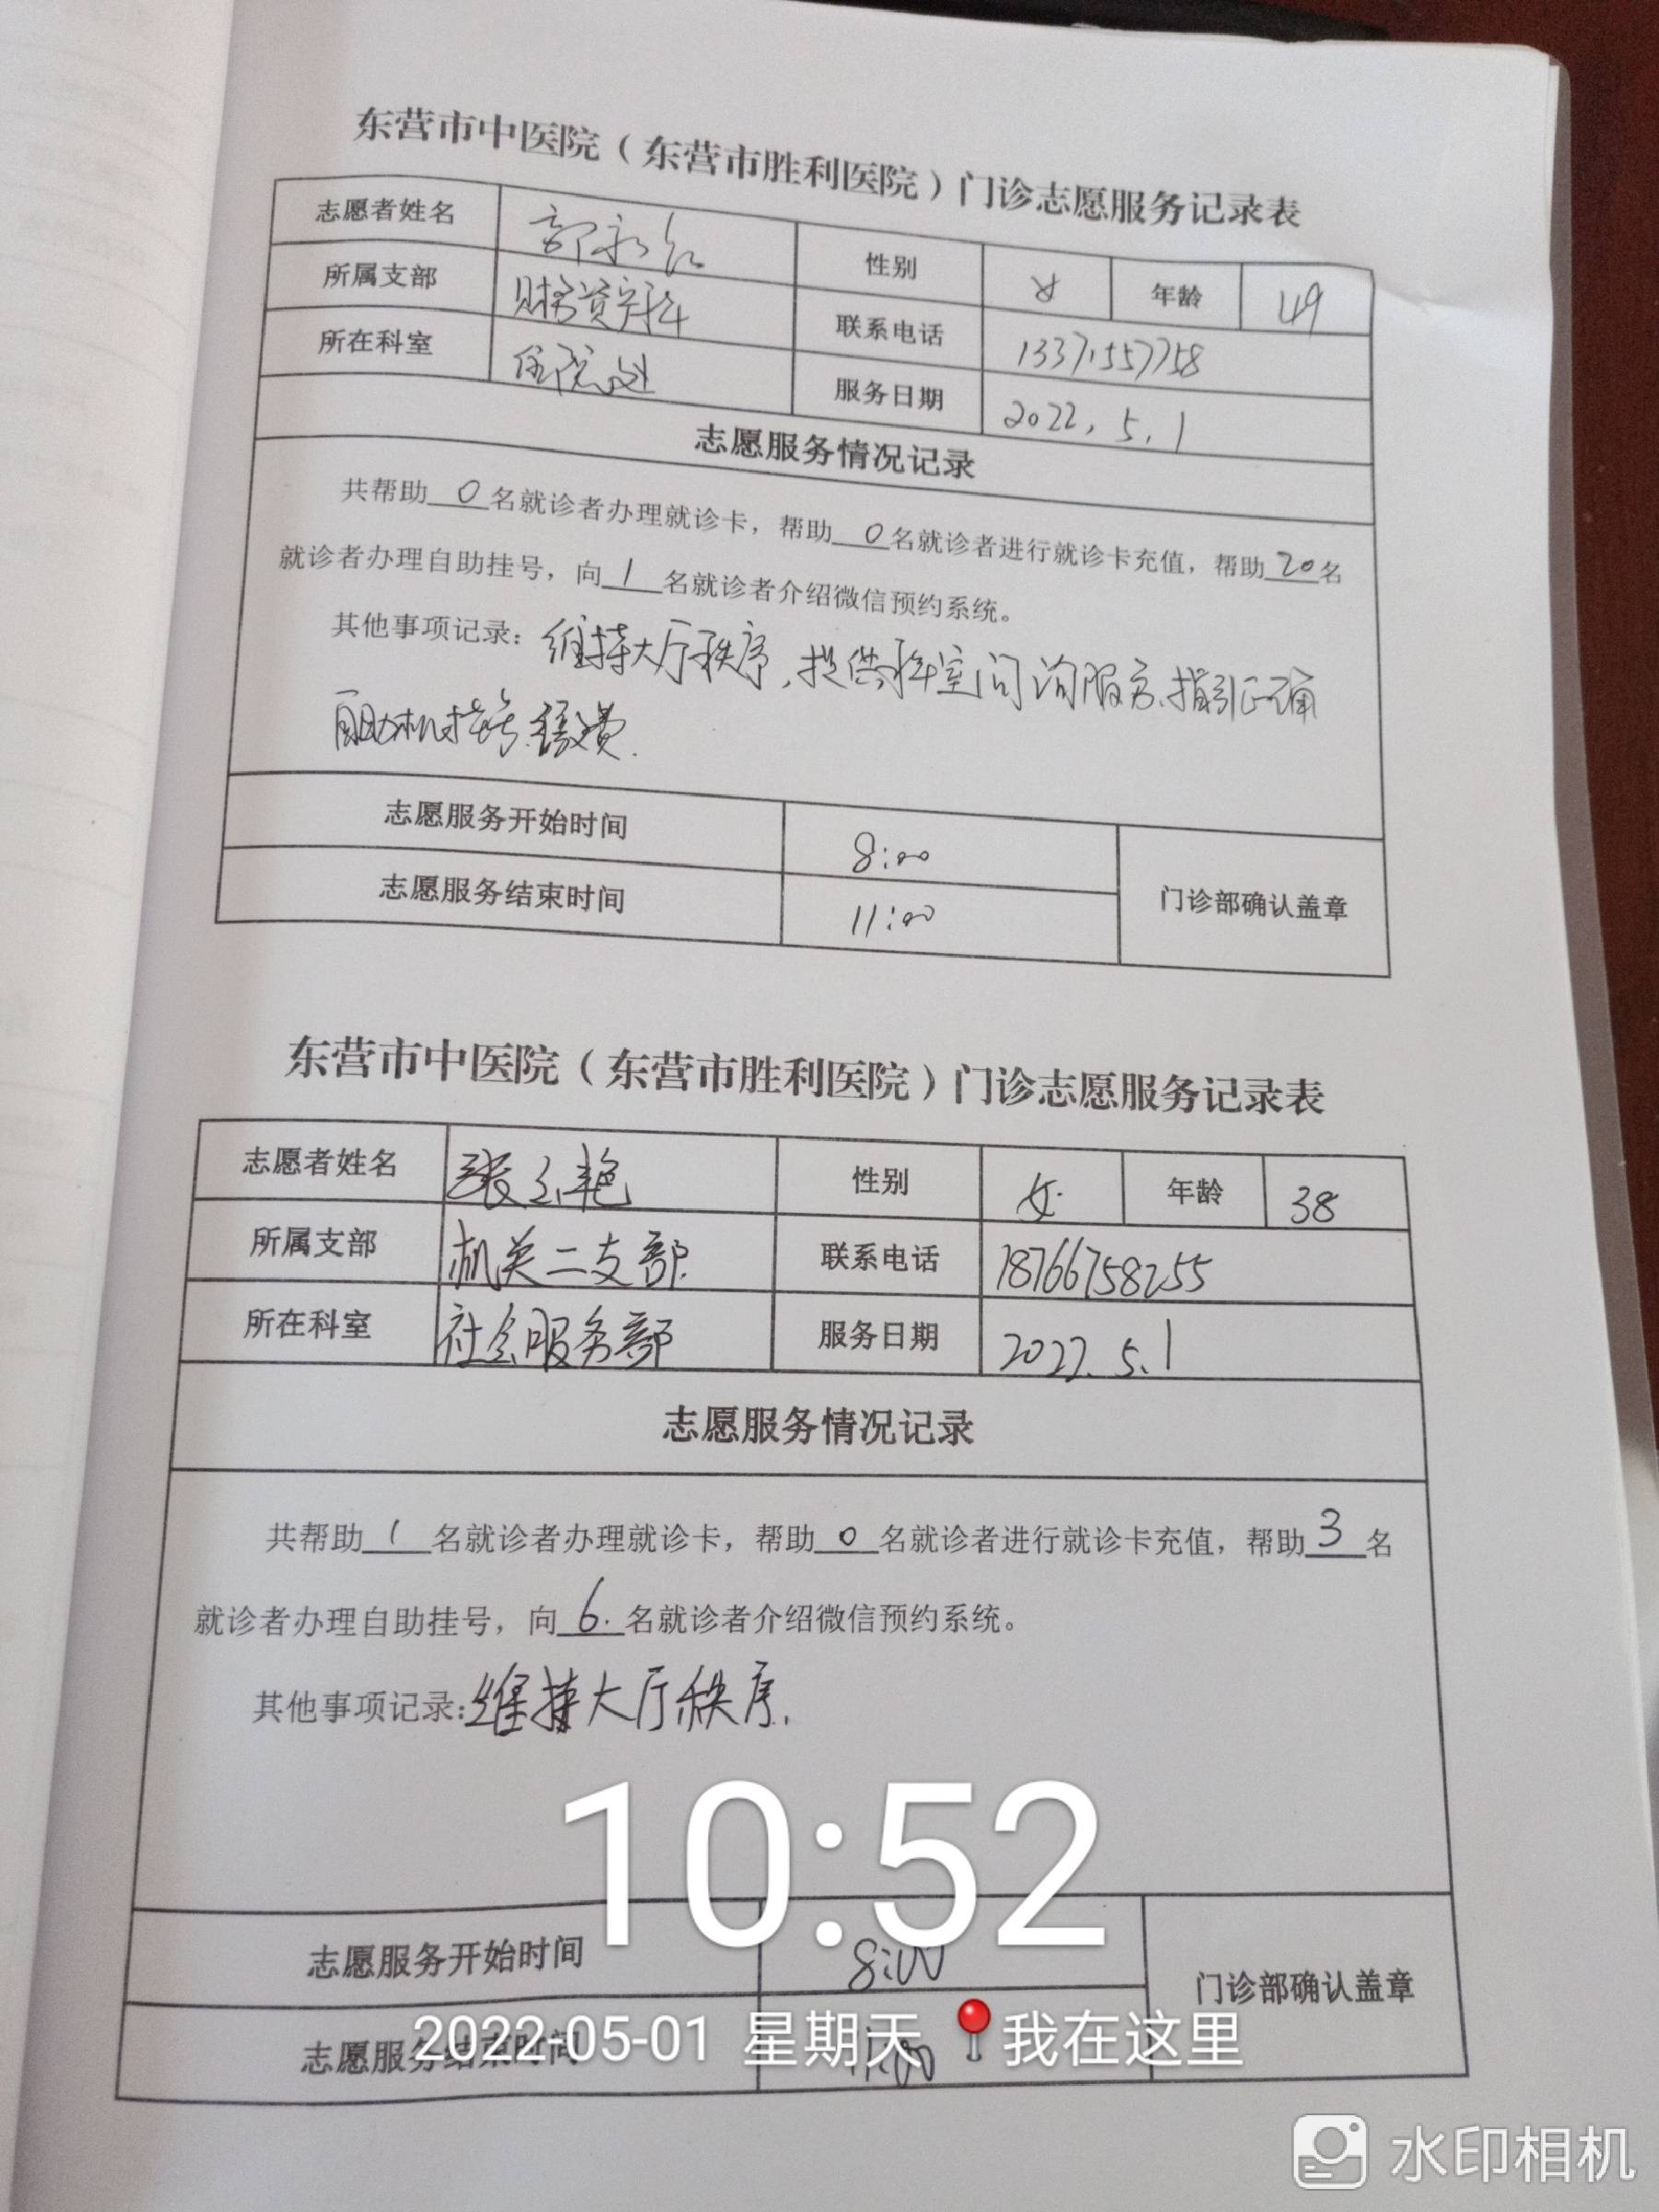 东营市中医院（东营市胜利医院）门诊志愿服务记录表
志愿者姓名 郭永红 性别 女 年龄 49
所属支部 财务资产科 联系电话 13371557758
所在科室 住院处 服务日期 2022.5.1
志愿服务情况记录
共帮助0名就诊者办理就诊卡，帮助0名就诊者进行就诊卡充值，帮助20名
就诊者办理自助挂号，向1名就诊者介绍微信预约系统。
其他事项记录：维持大厅秩序，提供科室问询服务，指引正确
自助机挂号、缴费.
志愿服务开始时间 8:00
门诊部确认盖章
志愿服务结束时间 11:00
东营市中医院（东营市胜利医院）门诊志愿服务记录表
志愿者姓名 张玉艳 性别 女 年龄 38
所属支部 机关二支部 联系电话 18766758255
所在科室 社会服务部 服务日期 2022.5.1
志愿服务情况记录
共帮助1名就诊者办理就诊卡，帮助0名就诊者进行就诊卡充值，帮助3名
就诊者办理自助挂号，向6.名就诊者介绍微信预约系统。
其他事项记录:维持大厅秩序.
10:52
志愿服务开始时间 8:00
门诊部确认盖章
2022-05-01 星期天 我在这里
志愿服务结束时间 11:00
水印相机